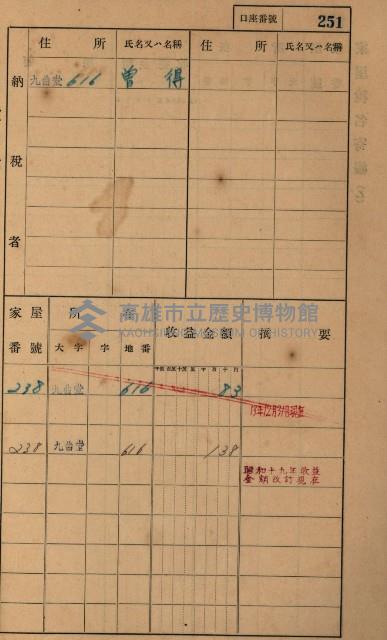 口座番號 251
住所 氏名又ハ名稱 住所 氏名又ハ名稱
納稅者
九曲堂 616 曾得
家屋番號 所在 收益金額 摘要
大字 字 地番
238 九曲堂 616 83
238 九曲堂 616 138
昭和十九年收益
金額改訂現在
高雄市立歷史博物館
KAOHSIUNG MUSEUM OF HISTORY